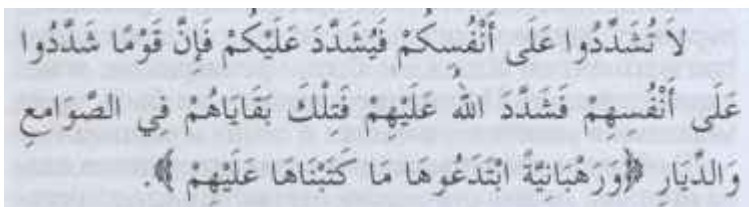 لاَ تُشَدِّدُوا عَلَى أَنْفُسِكُمْ فَيُشَدَّدَ عَلَيْكُمْ فَإِنَّ قَوْمًا شَدَّدُوا
عَلَى أَنْفُسِهِمْ فَشَدَّدَ اللهُ عَلَيْهِمْ فَتِلْكَ بَقَايَاهُمْ فِي الصَّوَامِعِ
وَالدِّيَارِ ﴿وَرَهْبَانِيَّةً ابْتَدَعُوهَا مَا كَتَبْنَاهَا عَلَيْهِمْ﴾.